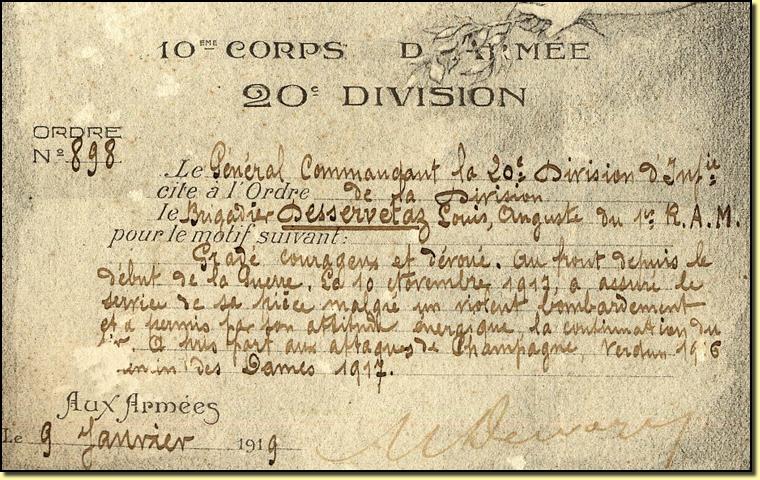 10EME CORPS D ARMÉE
20e DIVISION
ORDRE
No 898
Le Général Commandant la 20e Division d'Infie
cite à l'Ordre de la Division
le Brigadier Desservetaz Louis, Auguste du 1er R.A.M.
pour le motif suivant:
Gradé courageux et dévoué. Au front depuis le
début de la Guerre. Le 10 Novembre 1917, a assuré le
service de sa pièce malgré un violent bombardement
et a permis par son attitude énergique, la continuation du
tir. A pris part aux attaques de Champagne, Verdun 1916
des Dames 1917.
Aux Armées
Le 9 Janvier 1919